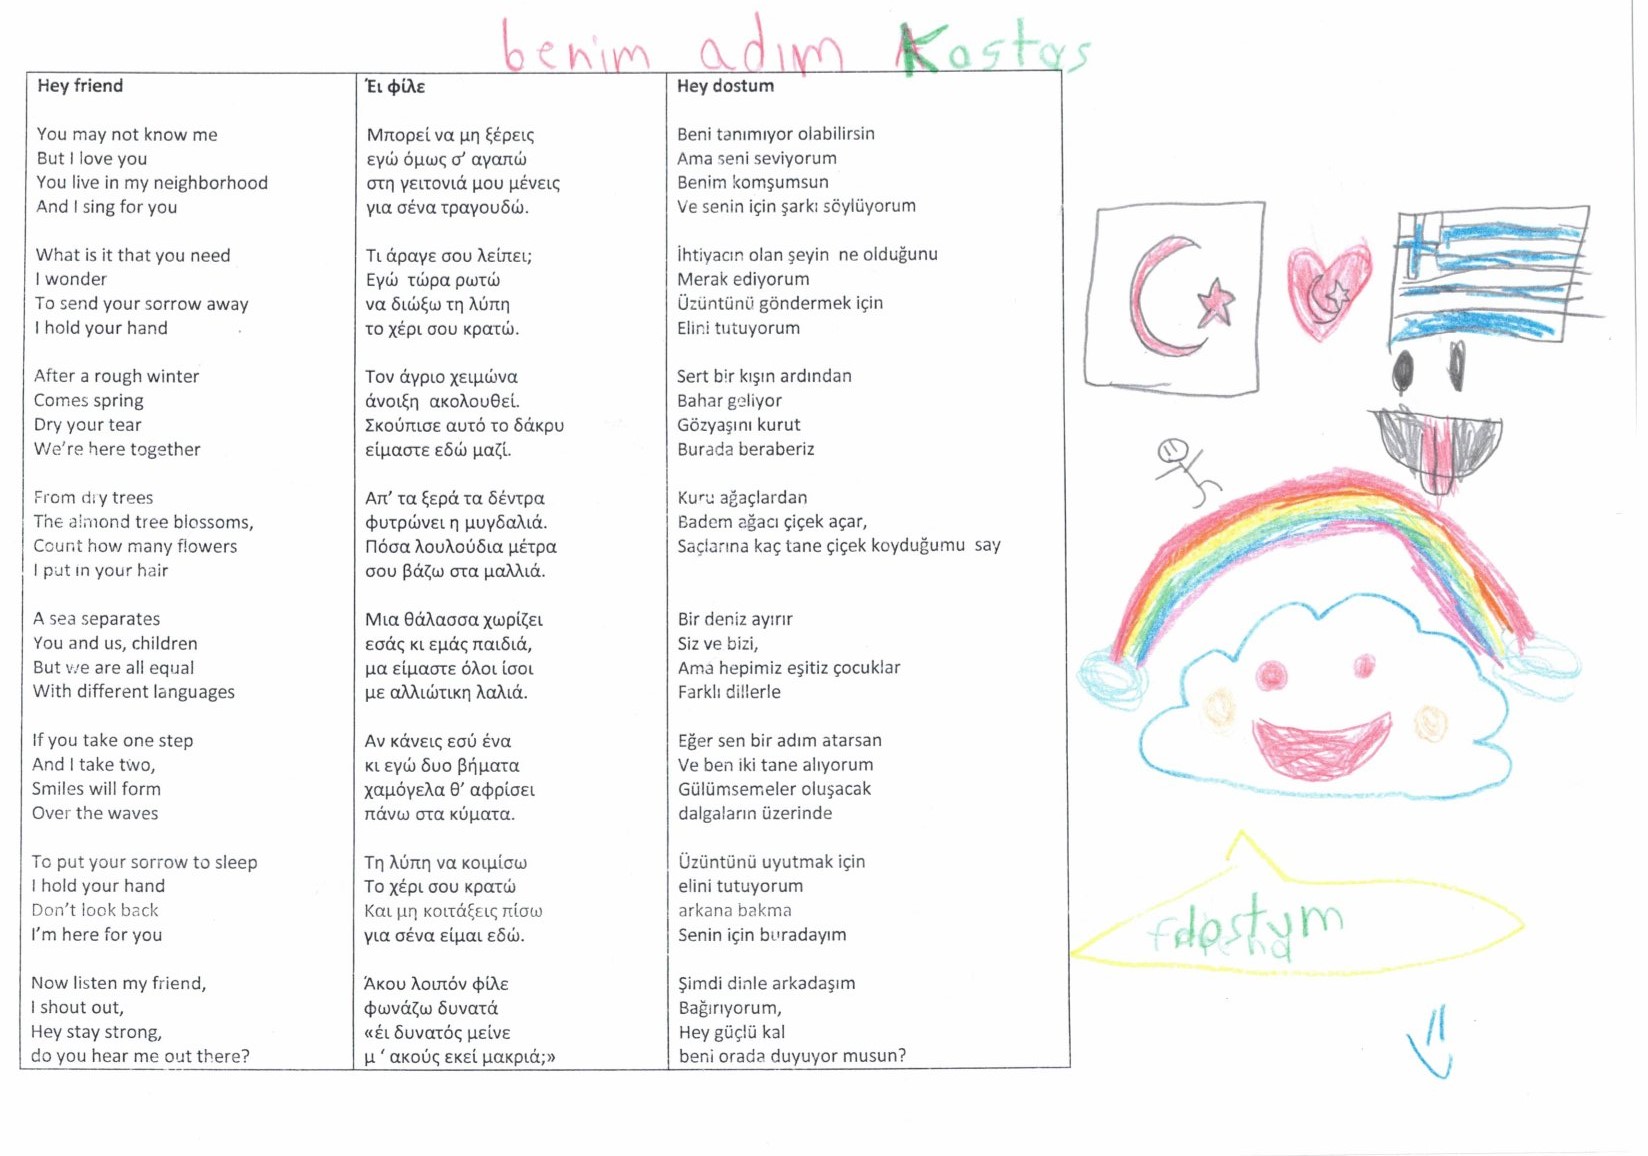 benim adım Kostas
Hey friend
You may not know me
But I love you
You live in my neighborhood
And I sing for you
What is it that you need
I wonder
To send your sorrow away
I hold your hand
After a rough winter
Comes spring
Dry your tear
We're here together
From dry trees
The almond tree blossoms,
Count how many flowers
I put in your hair
A sea separates
You and us, children
But we are all equal
With different languages
If you take one step
And I take two,
Smiles will form
Over the waves
To put your sorrow to sleep
I hold your hand
Don't look back
I'm here for you
Now listen my friend,
I shout out,
Hey stay strong,
do you hear me out there?
Έι φίλε
Μπορεί να μη ξέρεις
εγώ όμως σ' αγαπώ
στη γειτονιά μου μένεις
για σένα τραγουδώ.
Τι άραγε σου λείπει;
Εγώ τώρα ρωτώ
να διώξω τη λύπη
το χέρι σου κρατώ.
Τον άγριο χειμώνα
άνοιξη ακολουθεί.
Σκούπισε αυτό το δάκρυ
είμαστε εδώ μαζί.
Απ' τα ξερά τα δέντρα
φυτρώνει η μυγδαλιά.
Πόσα λουλούδια μέτρα
σου βάζω στα μαλλιά.
Μια θάλασσα χωρίζει
εσάς κι εμάς παιδιά,
μα είμαστε όλοι ίσοι
με αλλιώτικη λαλιά.
Αν κάνεις εσύ ένα
κι εγώ δυο βήματα
χαμόγελα θ' αφρίσει
πάνω στα κύματα.
Τη λύπη να κοιμίσω
Το χέρι σου κρατώ
Και μη κοιτάξεις πίσω
για σένα είμαι εδώ.
Άκου λοιπόν φίλε
φωνάζω δυνατά
«έι δυνατός μείνε
μ ' ακούς εκεί μακριά;»
Hey dostum
Beni tanımıyor olabilirsin
Ama seni seviyorum
Benim komşumsun
Ve senin için şarkı söylüyorum
İhtiyacın olan şeyin ne olduğunu
Merak ediyorum
Üzüntünü göndermek için
Elini tutuyorum
Sert bir kışın ardından
Bahar geliyor
Gözyaşını kurut
Burada beraberiz
Kuru ağaçlardan
Badem ağacı çiçek açar,
Saçlarına kaç tane çiçek koyduğumu say
Bir deniz ayırır
Siz ve bizi,
Ama hepimiz eşitiz çocuklar
Farklı dillerle
Eğer sen bir adım atarsan
Ve ben iki tane alıyorum
Gülümsemeler oluşacak
dalgaların üzerinde
Üzüntünü uyutmak için
elini tutuyorum
arkana bakma
Senin için buradayım
Şimdi dinle arkadaşım
Bağırıyorum,
Hey güçlü kal
beni orada duyuyor musun?
dostum